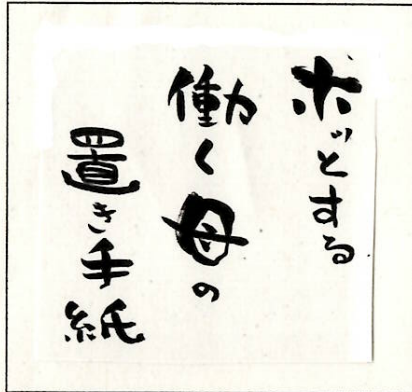 ホッとする
働く母の
置き手紙